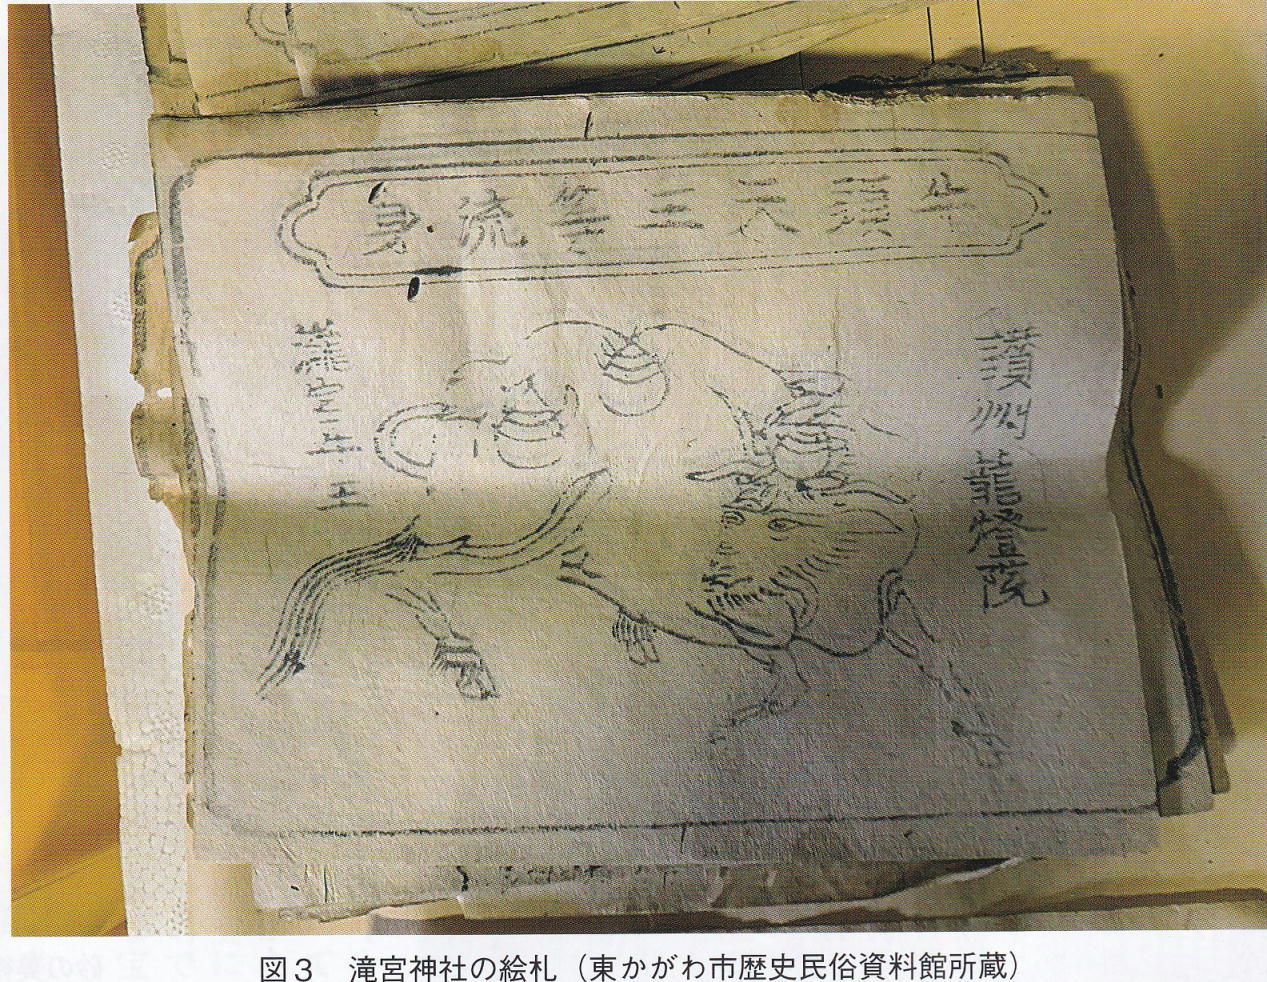 牛頭天王等流身
讃州龍燈院
瀧宮牛王
図3　滝宮神社の絵札（東かがわ市歴史民俗資料館所蔵）